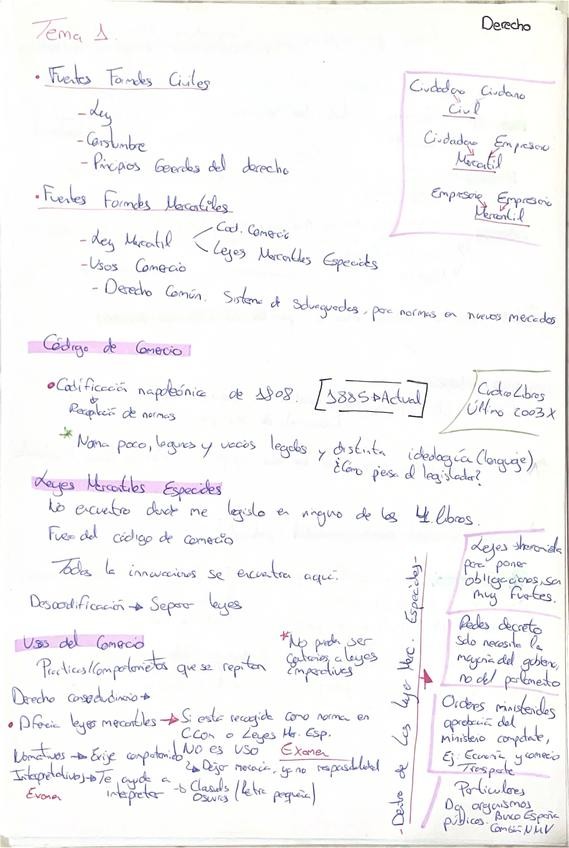 Derecho
Tema 1.
• Fuentes Formales Civiles
- Ley
- Costumbre
- Principios Generales del derecho
Ciudadano Ciudano
Civil
Ciudadano Empresario
Mercantil
Empresario Empresario
Mercantil
• Fuentes Formales Mercantiles
- Ley Mercatil
Cod. Comercio
Leyes Mercantiles Especiales
- Usos Comercio
- Derecho Común. Sistema de salvaguardas, para normas en nuevos mercados
Código de Comercio
• Codificación napoleónica de 1808. [1885 → Actual]
Recopilación de normas
Cuatro Libros
Último 2003 X
* Norma poco, lagunas y vacios legales y distinta ideología (lenguaje)
¿Cómo piensa el legislador?
Leyes Mercantiles Especiales
No encuentro donde me legislo en ninguno de los 4 libros.
Fuera del código de comercio
Todas la innovaciones se encuentra aquí.
Descodificación → Separar leyes
Usos del Comercio
Prácticas/comportamientos que se repiten
* No puede ser
contrarios a leyes
imperativas
Derecho consuetudinario →
• Diferencia leyes mercantiles → Si esta recogido como norma en
CCom o Leyes Mr. Esp.
NO es USO Examen
Normativos → Exige comportamiento
↳ Dejar mercancía, ya no responsabilidad
Interpretativos → Te ayuda a
interpretar → Clausulas
Oscuras (Letra pequeña)
Examen
- Dentro de las leyes Merc. Especiales -
Leyes
para poner
obligaciones, son
muy fuertes.
Reales decreto
Solo necesita la
mayoría del gobierno,
no del parlamento
Ordenes ministeriales
aprobación del
ministerio competente,
Ej: Economía y comercio
Trasporte
Particulares
De organismos
públicos. Banco España
Comisión NMV